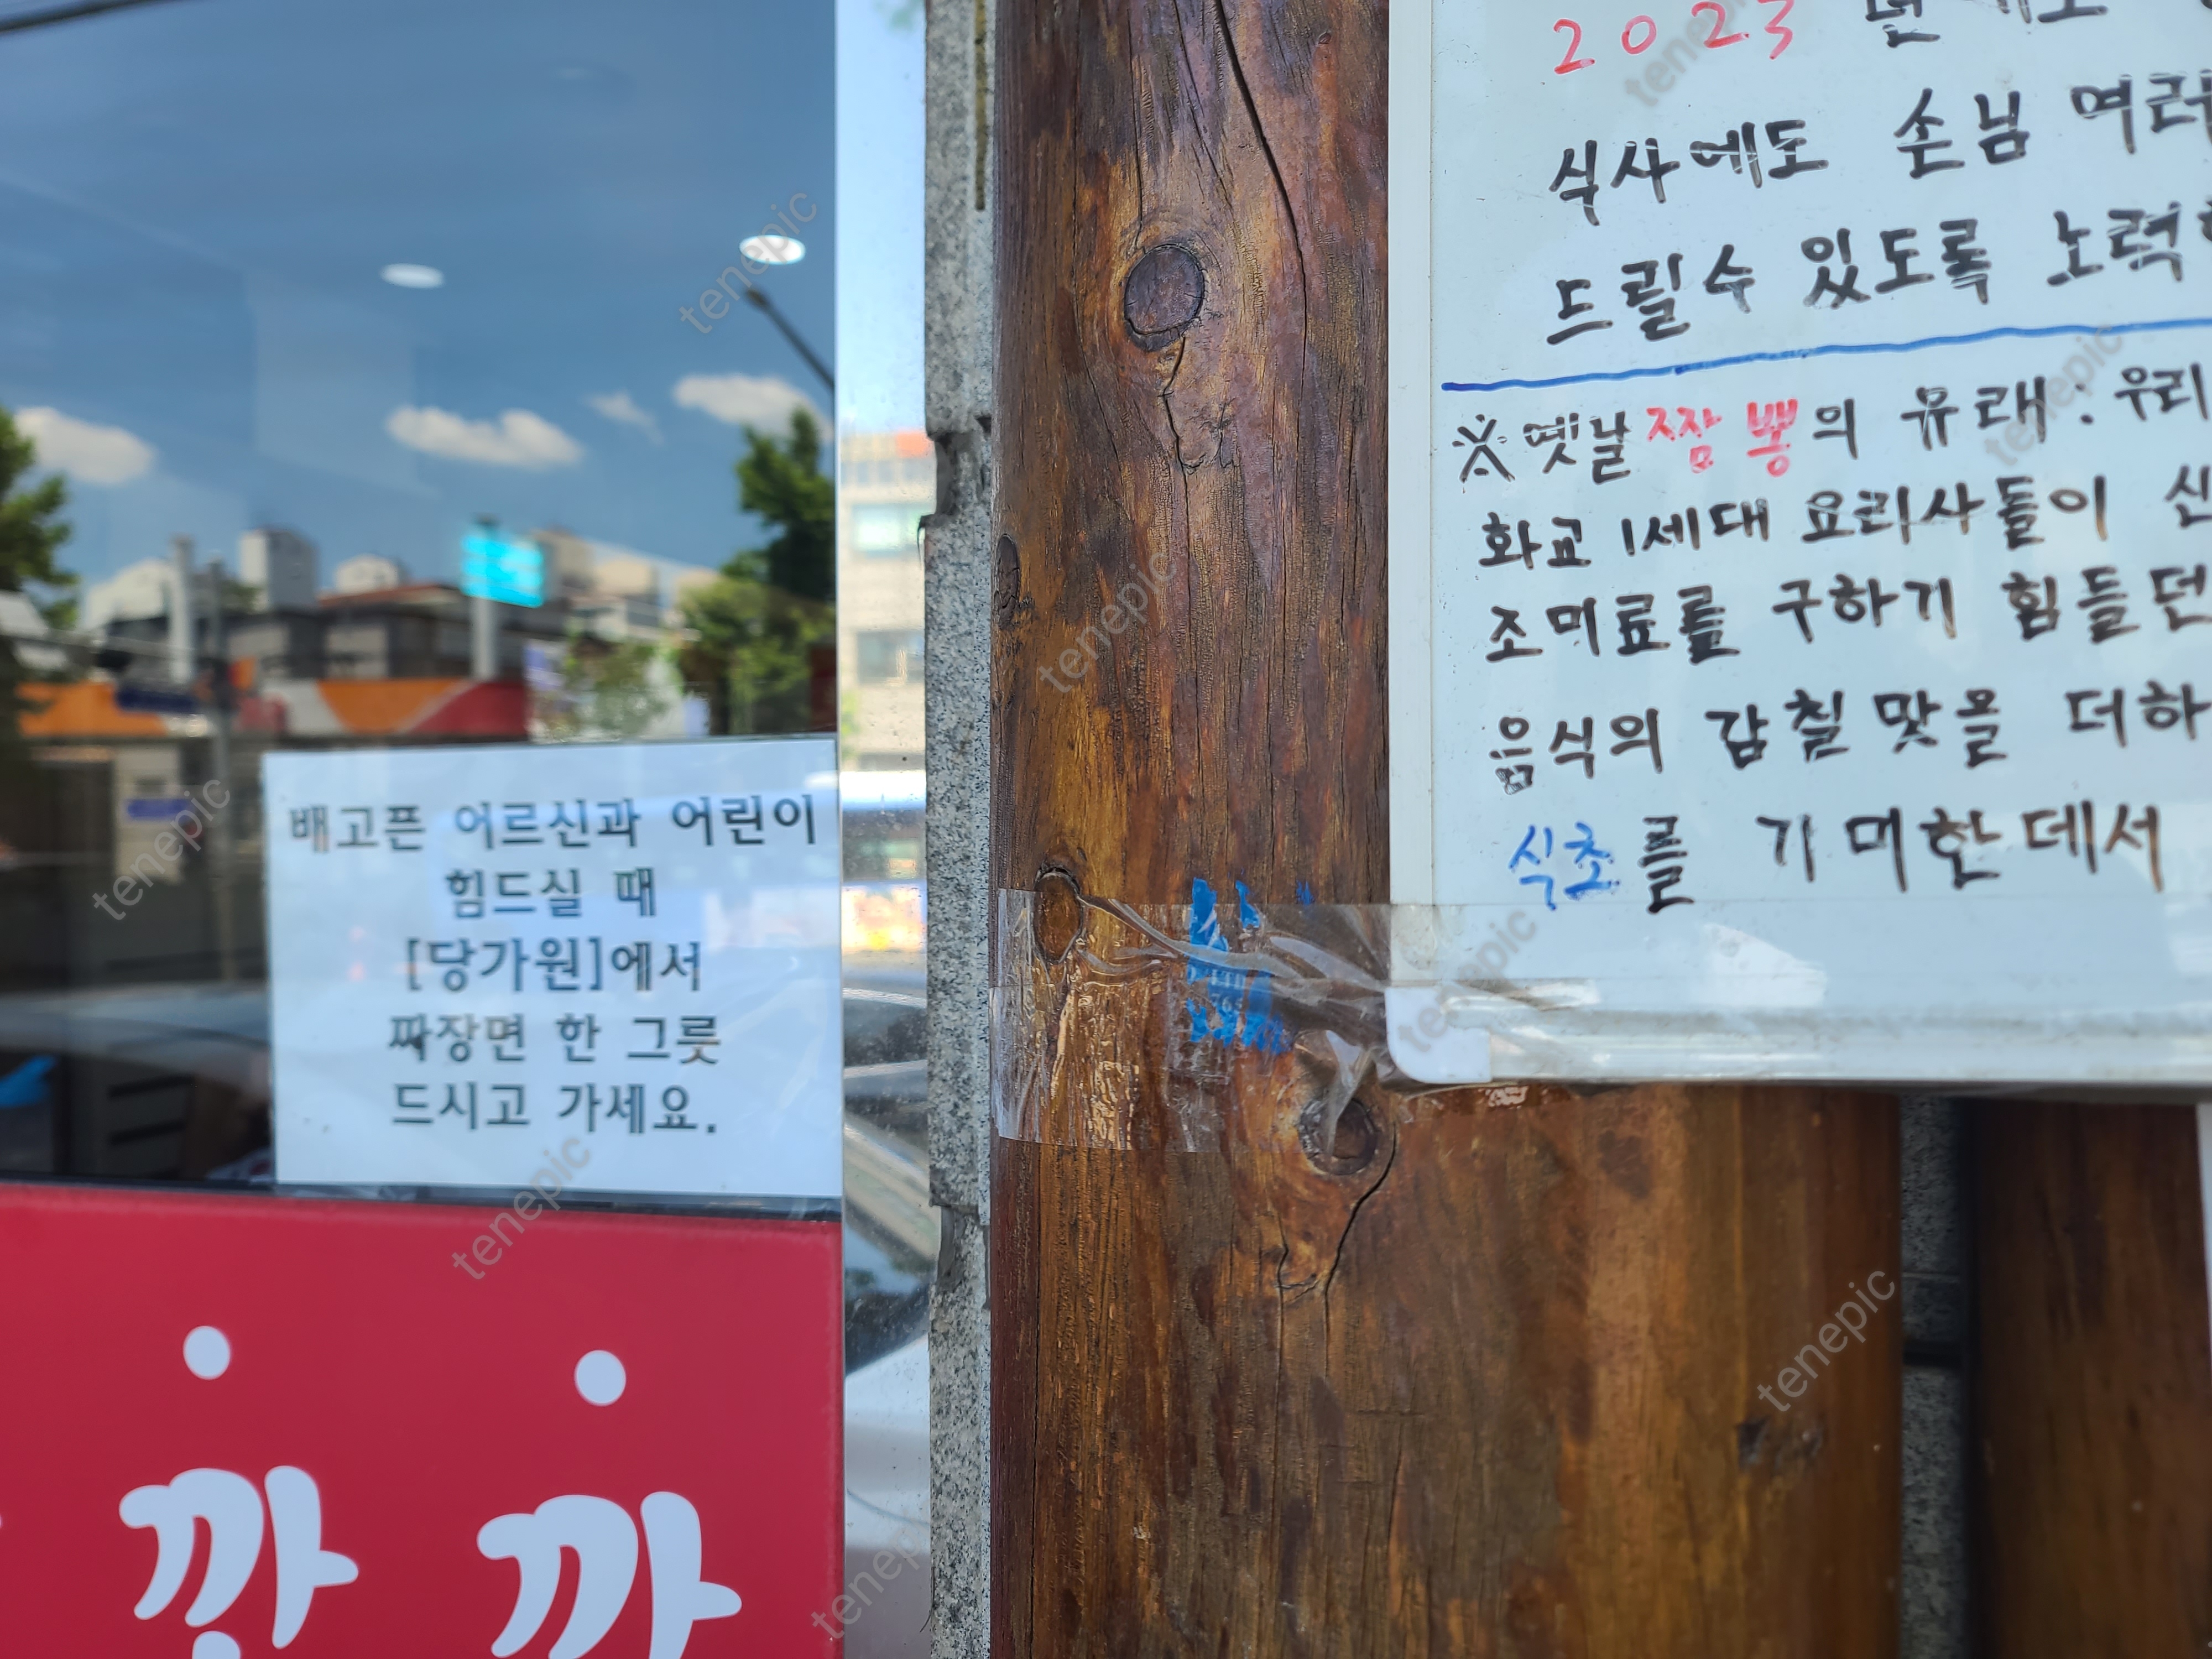 배고픈 어르신과 어린이
힘드실 때
[당가원]에서
짜장면 한 그릇
드시고 가세요.
2023
식사에도 손님 여러
드릴수 있도록 노력
※옛날짬뽕의 유래: 우리
화교 1세대 요리사들이 신
조미료를 구하기 힘들던
음식의 감칠맛을 더하
식초를 기미한데서
tenepic